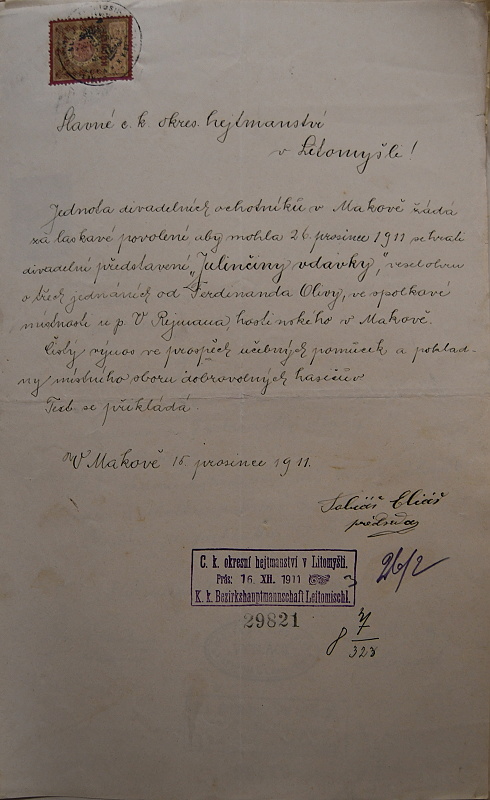 Slavné c. k. okres. hejtmanství
v Litomyšli!
Jednota divadelních ochotníků v Makově žádá
za laskavé povolení aby mohla 26. prosince 1911 sehráti
divadelní představení „Julinčiny vdavky," veselohru
o třech jednáních od Ferdinanda Olivy, ve spolkové
místnosti u p. V Rejmana, hostinského v Makově.
Čistý výnos ve prospěch učebných pomůcek a poklad-
ny místního sboru dobrovolných hasičův
Text se přikládá.
V Makově 15 prosince 1911.
Tobiáš Eliáš
předseda
C. k. okresní hejtmanství v Litomyšli.
Präs: 16. XII. 1911
K. k. Bezirkshauptmannschaft Leitomischl.
26/2
29821
8 7/323